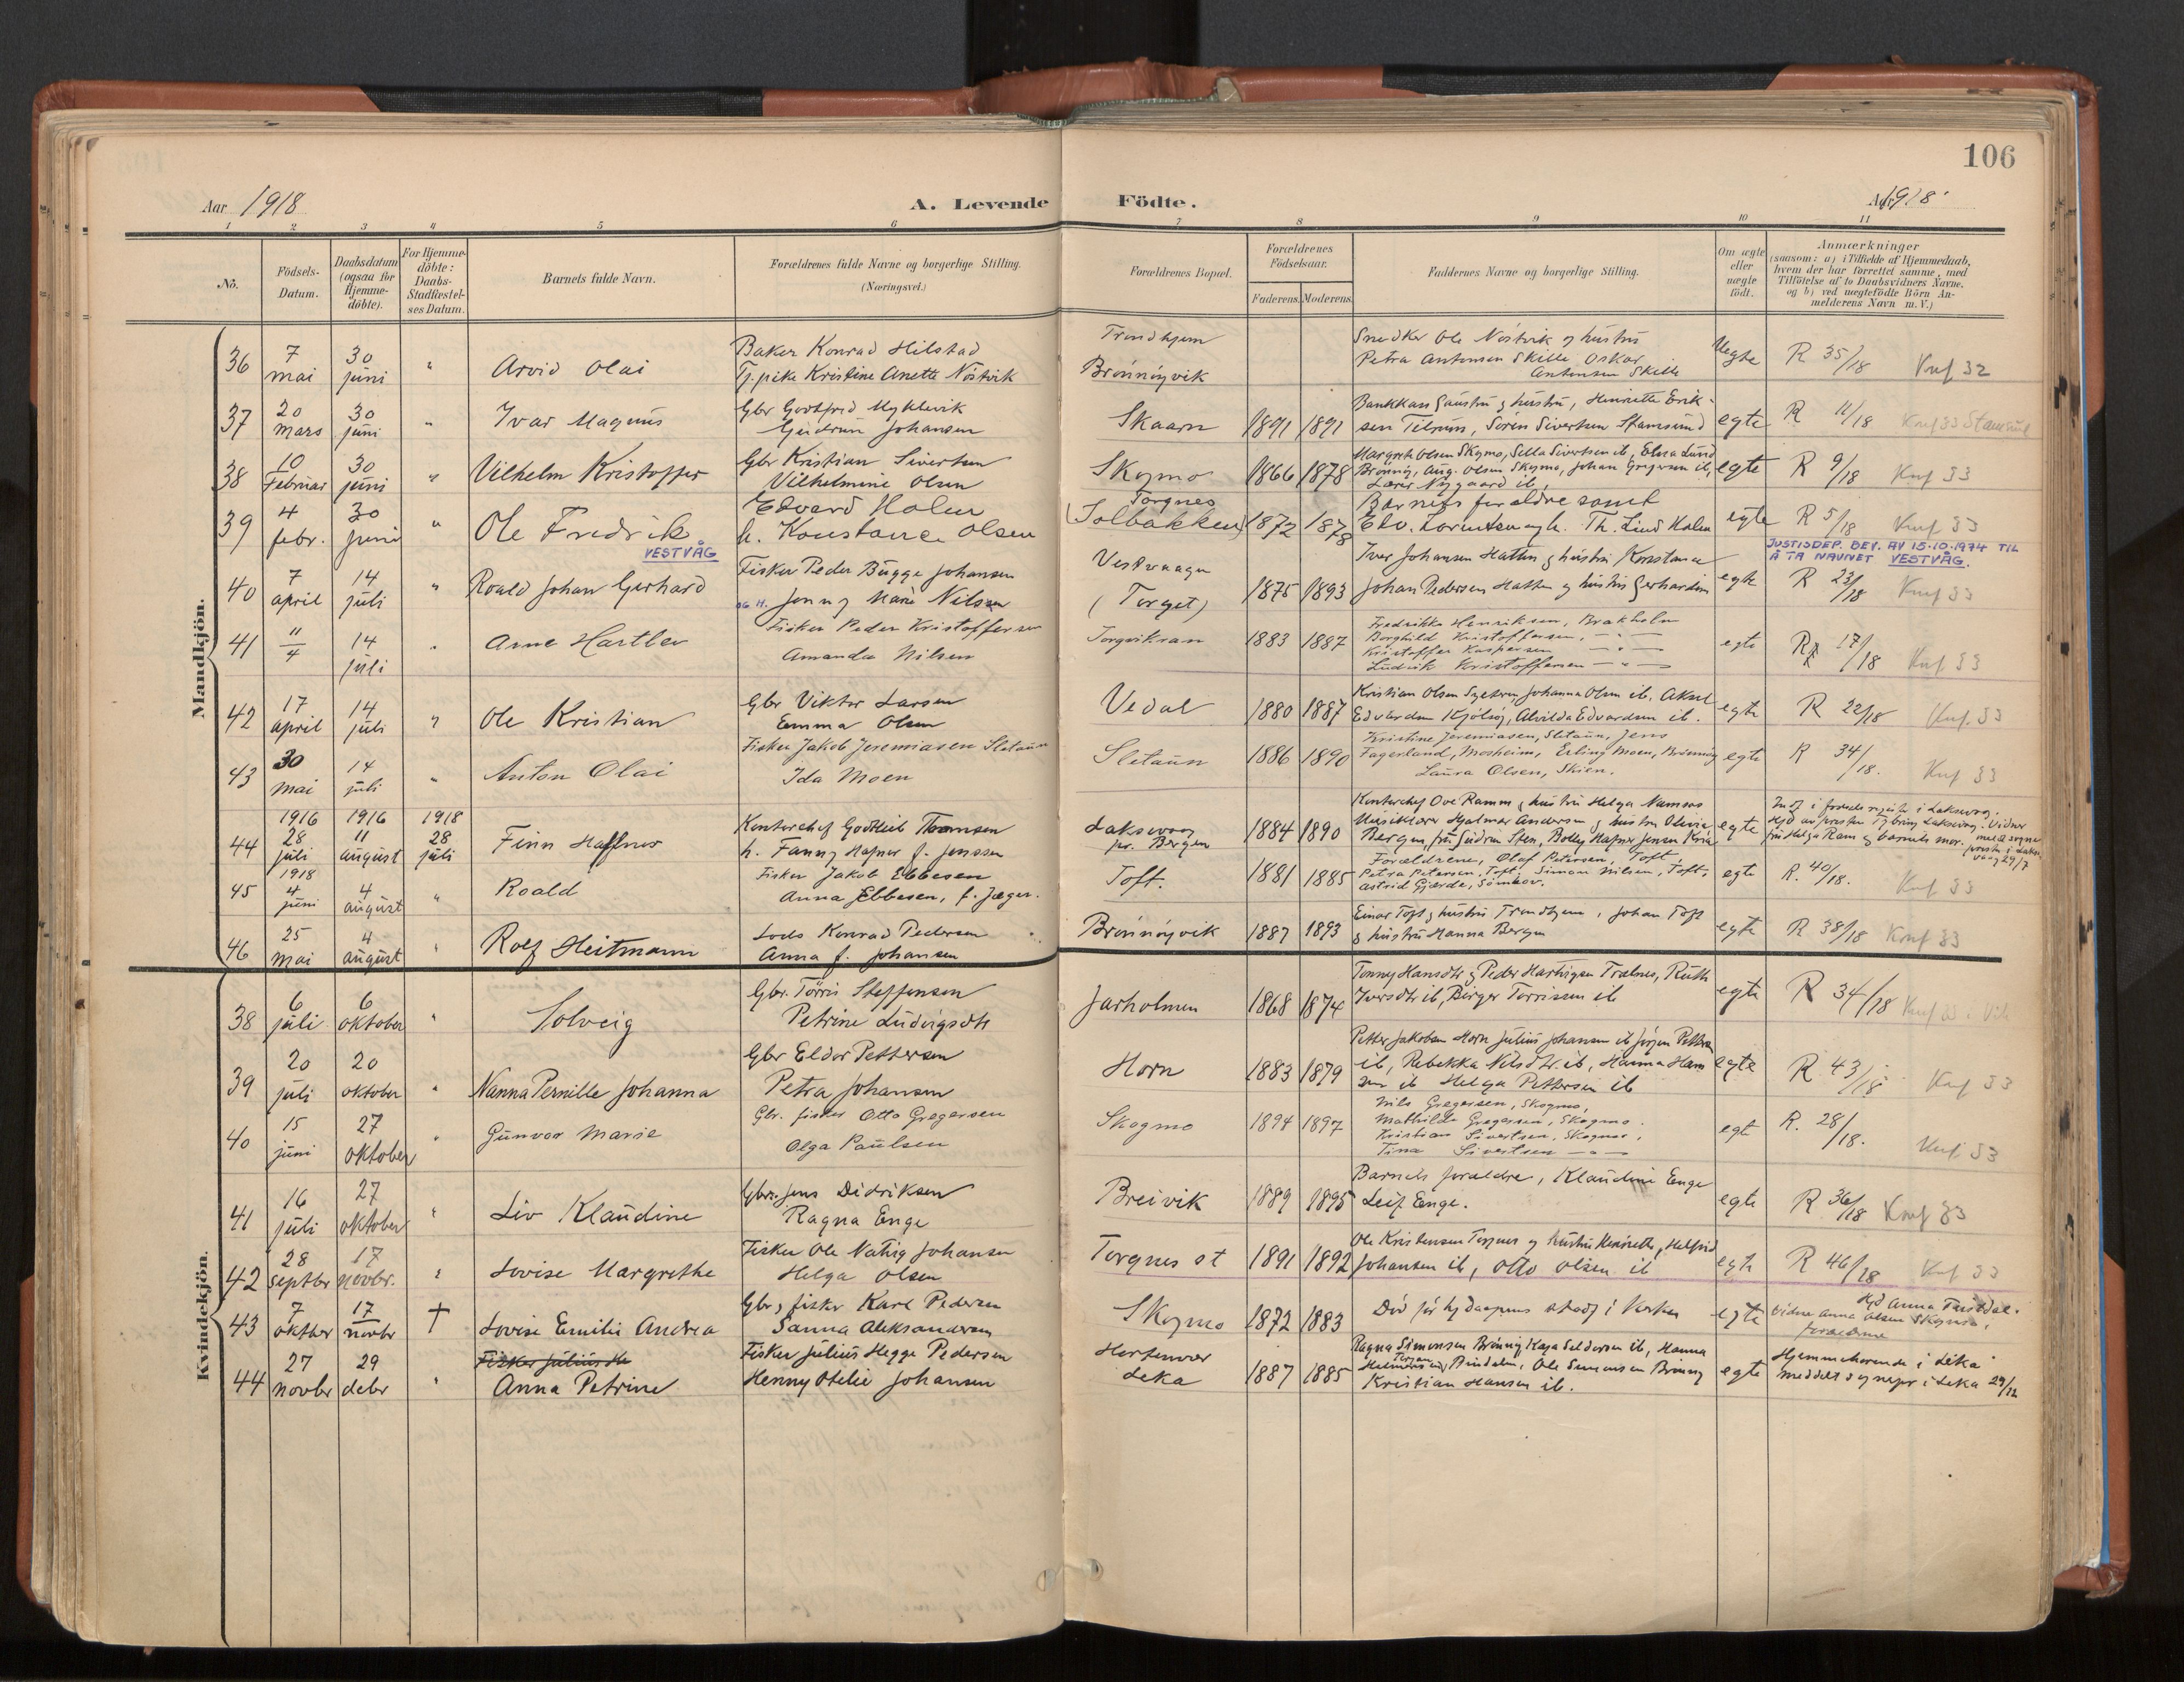 106
Aar 1918
A. Levende Födte.
Aar 1918
1 2 3 4 5 6 7 8 9 10 11
No.
Födsels-
Datum.
Daabsdatum
(ogsaa for
Hjemme-
döbte).
For Hjemme-
döbte:
Daabs-
Stadfæstel-
ses Datum.
Barnets fulde Navn.
Forældrenes fulde Navne og borgerlige Stilling.
(Næringsvei.)
Forældrenes Bopæl.
Forældrenes
Födselsaar.
Faderens. Moderens.
Faddernes Navne og borgerlige Stilling.
Om ægte
eller
uægte
födt.
Anmærkninger
(saasom: a) i Tilfælde af Hjemmedaab,
hvem der har forrettet samme, med
Tilföielse af to Daabsvidners Navne.
og b) ved uægtefödte Börn An-
melderens Navn m. V.)
Mandkjön.
36
7
mai
30
juni
"
Arvid Olai
Baker Konrad Hilstad
Tj.pike Kristine Anette Nöstvik
Trondhjem
Brönnöyvik
Snedker Ole Nöstvik og hustru
Petra Antonsen Skille Oskar
Antonsen Skille
Uegte
R 35/18 Knf 32
37
20
mars
30
juni
"
Ivar Magnus
Gbr Godtfrid Myklevik
Gudrun Johansen
Skaarn
1891 1891
Henriette Erik-
sen Tilrum, Sören Sivertsen Stamsund
egte
R 11/18 Knf 33 Stamsund
38
10
Februar
30
juni
"
Vilhelm Kristoffer
Gbr Kristian Sivertsen
Vilhelmine Olsen
Skogmo
1866 1878
Margrete Olsen Skogmo, Sella Sivertsen ib, Elna Lund
Brönnöy, Aug. Olsen Skogmo, Johan Gregersen ib,
Lærer Nygaard ib,
egte
R 9/18 Knf 33
39
4
febr.
30
juni
"
Ole Fredrik
Edvard Holm
h. Konstance Olsen
Torgnes
(Solbakken)
1872 1878
Barnets forældre samt
Edv. Lorentsen og h. Th. Lind Holm
egte
R 5/18 Knf 33
VESTVÅG
JUSTISDEP. BEV. AV 15.10.1974 TIL
Å TA NAVNET VESTVÅG.
40
7
april
14
juli
"
Roald Johan Gerhard
Fisker Peder Bugge Johansen
OG H. Jenny Marie Nilssen
Vestvaagen
(Torget)
1875 1893
Iver Johansen Hatten og hustru Konstance
Johan Pedersen Hatten og hustru Gerhardine
egte
R 23/18 Knf 33
41
11
4
14
juli
"
Arne Hartlev
Fisker Peder Kristoffersen
Amanda Nilsen
Torgviksan
1883 1887
Fredrikke Henriksen, Brakholm
Borghild Kristoffersen, — " —
Kristoffer Kaspersen — " —
Ludvik Kristoffersen — " —
egte
R 17/18 Knf 33
42
17
april
14
juli
"
Ole Kristian
Gbr Viktor Larsen
Emma Olsen
Vedal
1880 1887
Kristian Olsen Johanna Olsen ib. Aksel
Edvardsen Kjölsöy, Alvilda Edvardsen ib.
egte
R 22/18 Knf. 33
43
30
mai
14
juli
"
Anton Olai
Fisker Jakob Jeremiasen Sletaun
Ida Moen
Sletaun
1886 1890
Kristine Jeremiasen, Sletaun, Jens
Fagerland, Mosheim, Erling Moen, Brönnöy
Laura Olsen, Skien.
egte
R 34/18. Knf 33
44
1916
28
juli
1916
11
august
1918
28
juli
Finn Haffner
Kontorchef Godtlieb Thomsen
h. Fanny Hafner f. Jenssen
Laksevaag
pr. Bergen
1884 1890
Kontorchef Ove Ramm og hustru Helga Namsos
Musiklærer Hjalmar Andersen og hustru Olivia
Bergen, fru Gudrun Sten, Bolly Hafner Jensen Kria
egte
Indf. i fødselsregister i Laksevaag.
Hjd av presten Tybring Laksevaag. Vidner
fru Helga Ram og barnets mor.
meld sogne
prest i Lakse
vaag 29/7
45
1918
4
juni
4
august
"
Roald
Fisker Jakob Ebbesen
Anna Ebbesen, f. Jæger.
Toft.
1881 1885
Forældrene, Olaf Petersen, Toft,
Petra Petersen, Toft. Simon Nilsen, Toft.
Astrid Gjærde, Sömhov.
egte
R. 40/18. Knf 33
46
25
mai
4
august
"
Rolf Heitmann
Lods Konrad Pedersen
Anna f. Johansen
Brönnöyvik
1887 1893
Einar Toft og hustru Trondhjem, Johan Toft
og hustru Hanna Bergen
egte
R 38/18 Knf 33
Kvindekjön.
38
6
juli
6
oktober
"
Solveig
Gbr. Törris Steffensen
Petrine Ludvigsdtr
Jarholmen
1868 1874
Tonny Hansdtr og Peder Hartvigsen Trælnes, Ruth
Iversdtr ib, Birger Torrissen ib
egte
R 34/18 Knf 33
39
20
juli
20
oktober
"
Nanna Pernille Johanna
Gbr Eldor Pettersen
Petra Johansen
Horn
1883 1879
Petter Jakobsen Horn Julius Johansen ib Jörgen Pettersen
ib, Rebekka Nilsdtr. ib, Hanna Han
sen ib Helga Pettersen ib
egte
R 43/18 Knf 33
40
15
juni
27
oktober
"
Gunvor Marie
Gbr. fisker Otto Gregersen
Olga Paulsen
Skogmo
1894 1897
Nils Gregersen, Skogmo,
Mathilde Gregersen, Skogmo.
Kristian Sivertsen, Skogmo,
Tina Sivertsen — " —
egte
R. 28/18. Knf. 33
41
16
juli
27
oktober
"
Liv Klaudine
Gbr. Jens Didriksen
Ragna Enge
Breivik
1889 1895
Barnets forældre, Klaudine Enge
Leif Enge.
egte
R 36/18 Knf 33
42
28
septbr
17
novbr.
"
Lovise Margrethe
Fisker Ole Nahig Johansen
Helga Olsen
Torgnes st
1891 1892
Ole Kristensen Torgnes og hustru Henriette, Helfrid
Johansen ib, Otto Olsen ib
egte
R 46/18 Knf 33
43
7
oktbr
17
novbr
†
Lovise Emilie Andrea
Gbr og fisker Karl Pedersen
Sanna Aleksandersen
Skogmo
1872 1883
Död för hjdaapens stadf i kirken
egte
Hjd Anna Tustdal.
Vidne Anna Olsen Skogmo,
forældrene
44
27
novbr
29
debr
"
Fisker Julius He
Anna Petrine
Fisker Julius Hegge Pedersen
Henny Otelie Johansen
Hortenvær
Leka
1887 1885
Ragna Simonsen Brönnöy Kaja Seldersen ib, Hanna
Bindalen, Ole Simonsen Brönnöy
Kristian Hansen ib.
egte
Hjemmehørende i Leka
meddelt sognepr i Leka 29/12